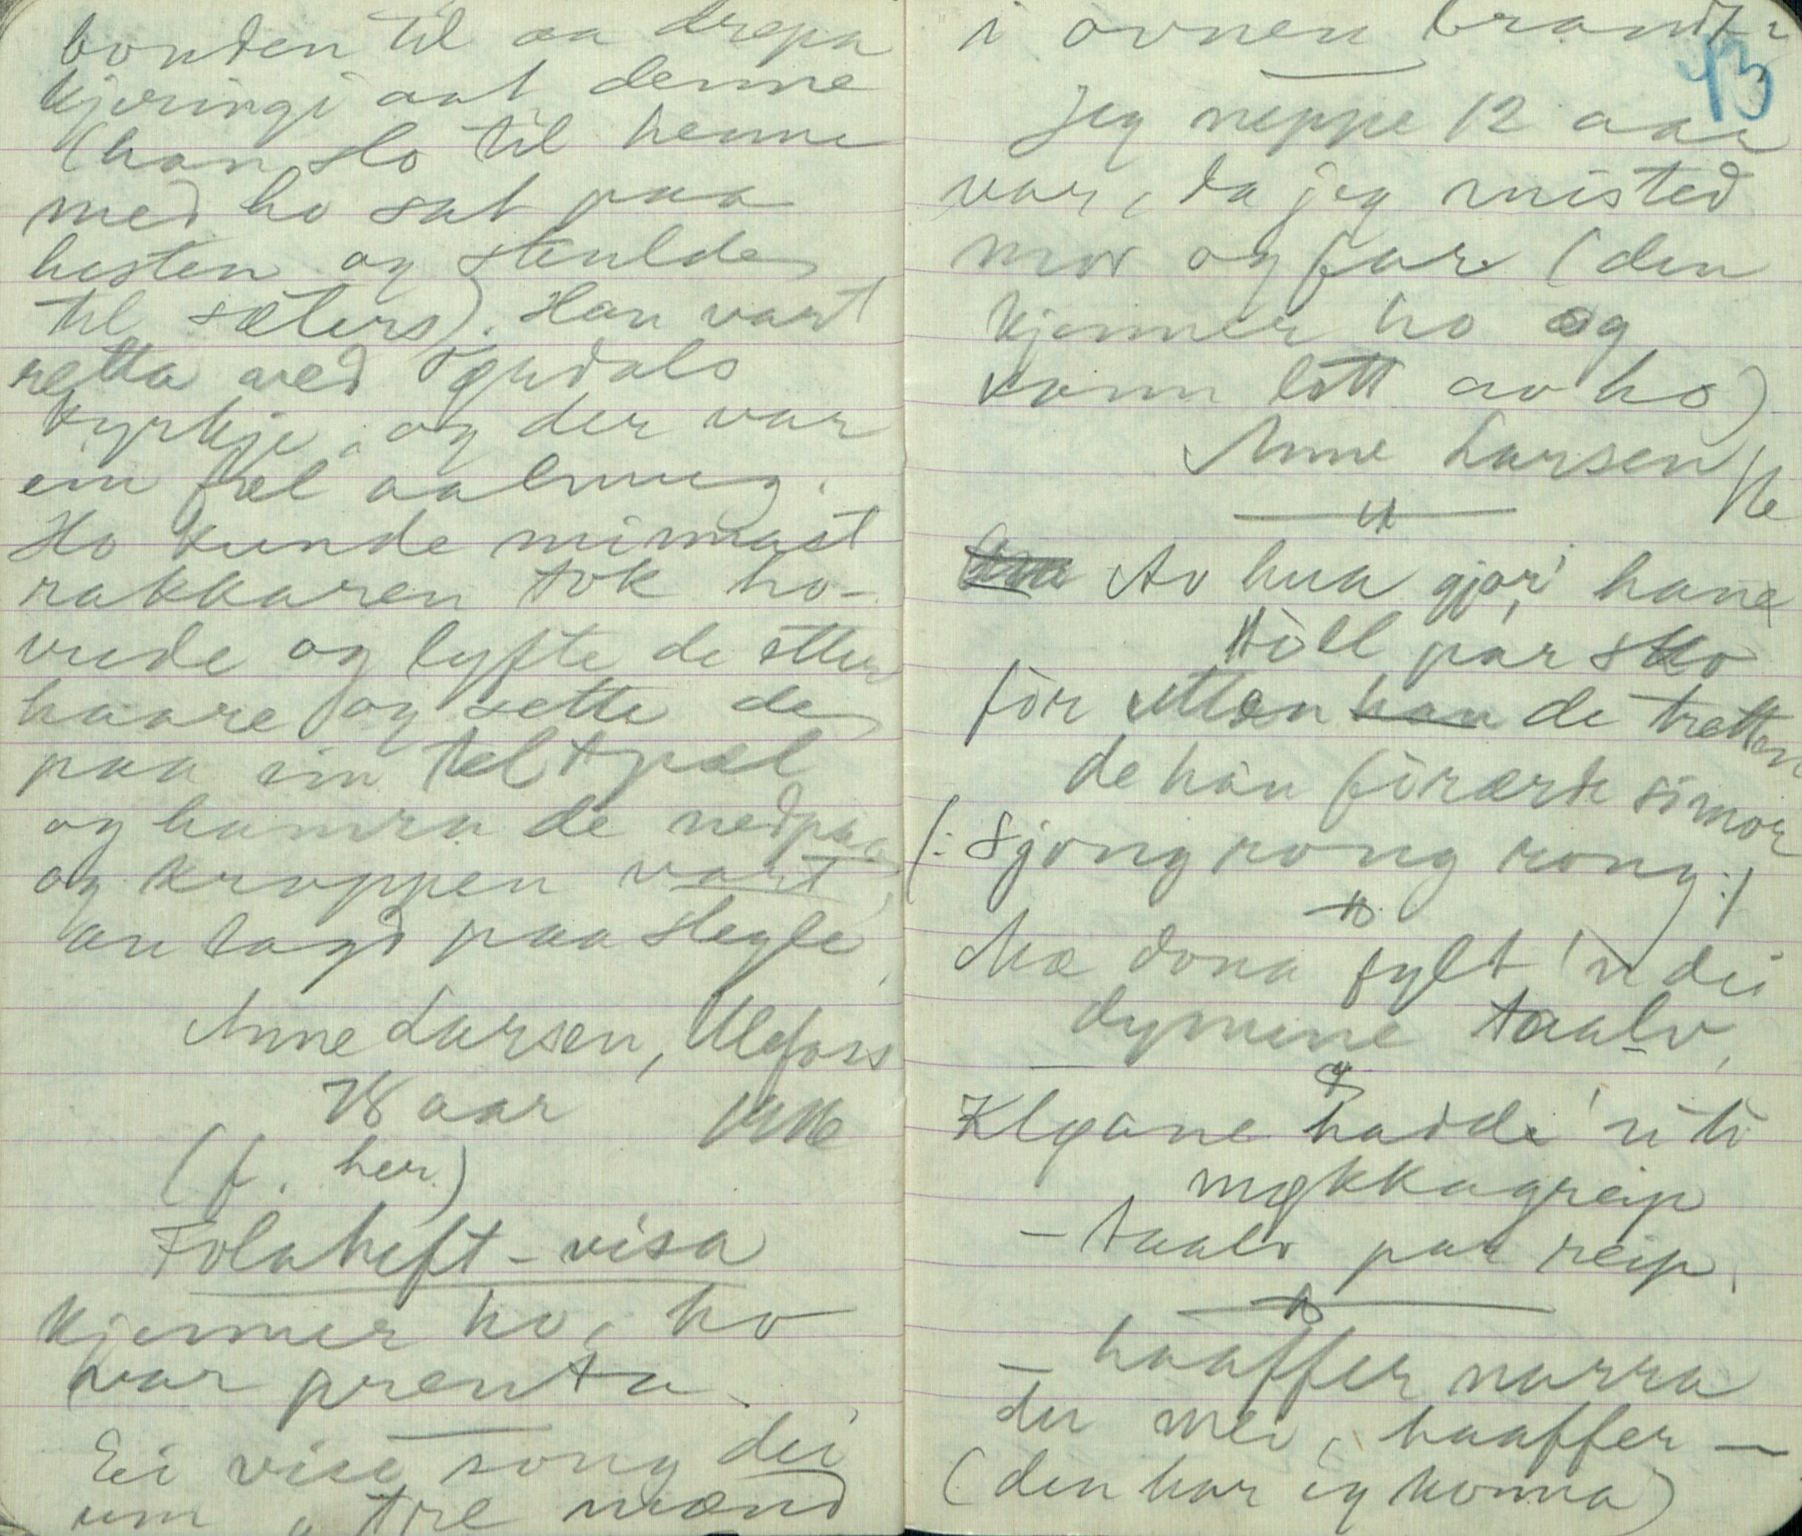 bonden til aa drepa
kjeringi aat denne
(han slo til henne
med ho sat paa
hesten og skulde
til sæters). Han vart
retta ved Øndals
kyrkje, og der var
ein fæl aalmug.
Ho kunde minnast
rakkaren tok ho-
vude og lyfte de etter
haare og sette de
paa ein teltpæl
og hamra de nedpaa
og kroppen vart
an lagd paa stegle
Anne Larsen, Ulefoss
78 aar
(f. her)
Folaheft-visa
kjenner ho, ho
var prenta.
Ei vise song dei
um "tre mænd
i ovnen brændt"
43
Jeg neppe 12 aar
var, da jeg misted
mor og far (den
kjenner ho og
kann litt av ho)
Anne Larsen
Av hua gjor' hane
tòll pár sko
fòr uttan de tretten
de hàn fòrærde simor
(: Sjong rong rong :)
Mæ dona fylt 'n dei
dynune taalv,
Kløane hadde 'n ti
møkkagreip
- taalv par reip.
- haaffer narra
du mei, haaffer -
(den har eg konna)